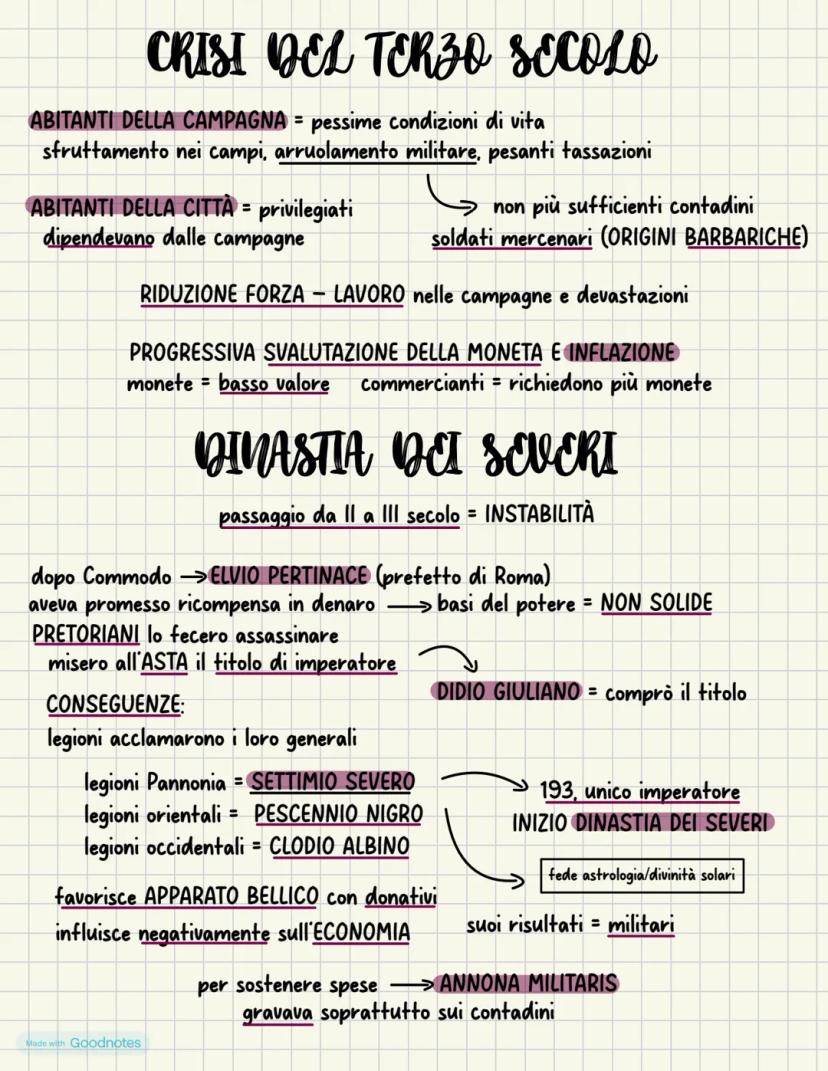 CRISI DEL TERZO SECOLO
ABITANTI DELLA CAMPAGNA = pessime condizioni di vita
sfruttamento nei campi, arruolamento militare, pesanti tassazioni
ABITANTI DELLA CITTÀ = privilegiati
dipendevano dalle campagne
non più sufficienti contadini
soldati mercenari (ORIGINI BARBARICHE)
RIDUZIONE FORZA – LAVORO nelle campagne e devastazioni
PROGRESSIVA SVALUTAZIONE DELLA MONETA E INFLAZIONE
monete = basso valore commercianti = richiedono più monete
DINASTIA DEI SEVERI
passaggio da II a III secolo = INSTABILITÀ
dopo Commodo → ELVIO PERTINACE (prefetto di Roma)
aveva promesso ricompensa in denaro → basi del potere = NON SOLIDE
PRETORIANI lo fecero assassinare
misero all'ASTA il titolo di imperatore
DIDIO GIULIANO = comprò il titolo
CONSEGUENZE:
legioni acclamarono i loro generali
legioni Pannonia = SETTIMIO SEVERO
legioni orientali = PESCENNIO NIGRO
legioni occidentali = CLODIO ALBINO
193, unico imperatore
INIZIO DINASTIA DEI SEVERI
fede astrologia/divinità solari
favorisce APPARATO BELLICO con donativi
influisce negativamente sull'ECONOMIA
suoi risultati = militari
per sostenere spese → ANNONA MILITARIS
gravava soprattutto sui contadini
Made with Goodnotes